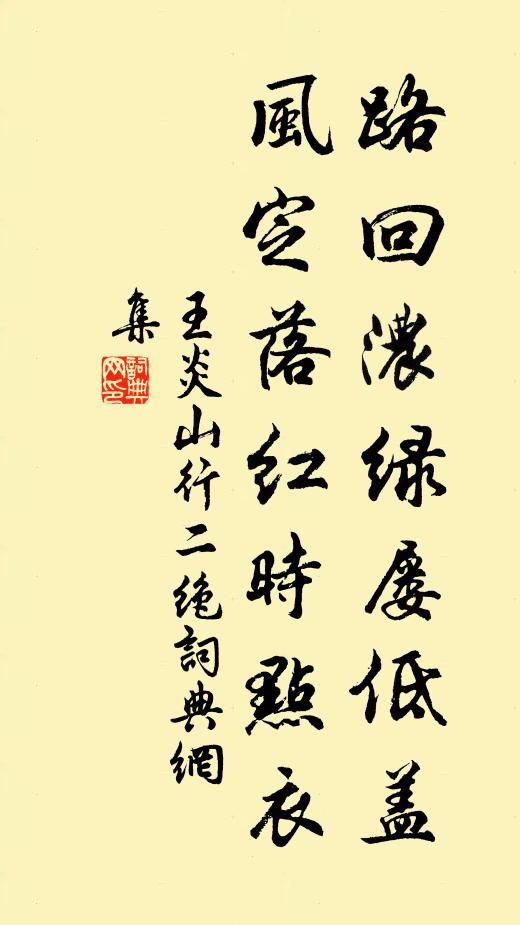 路回濃緑屡低盖
風定落紅時點衣
王炎山行二绝詞典網
集
詞典网印